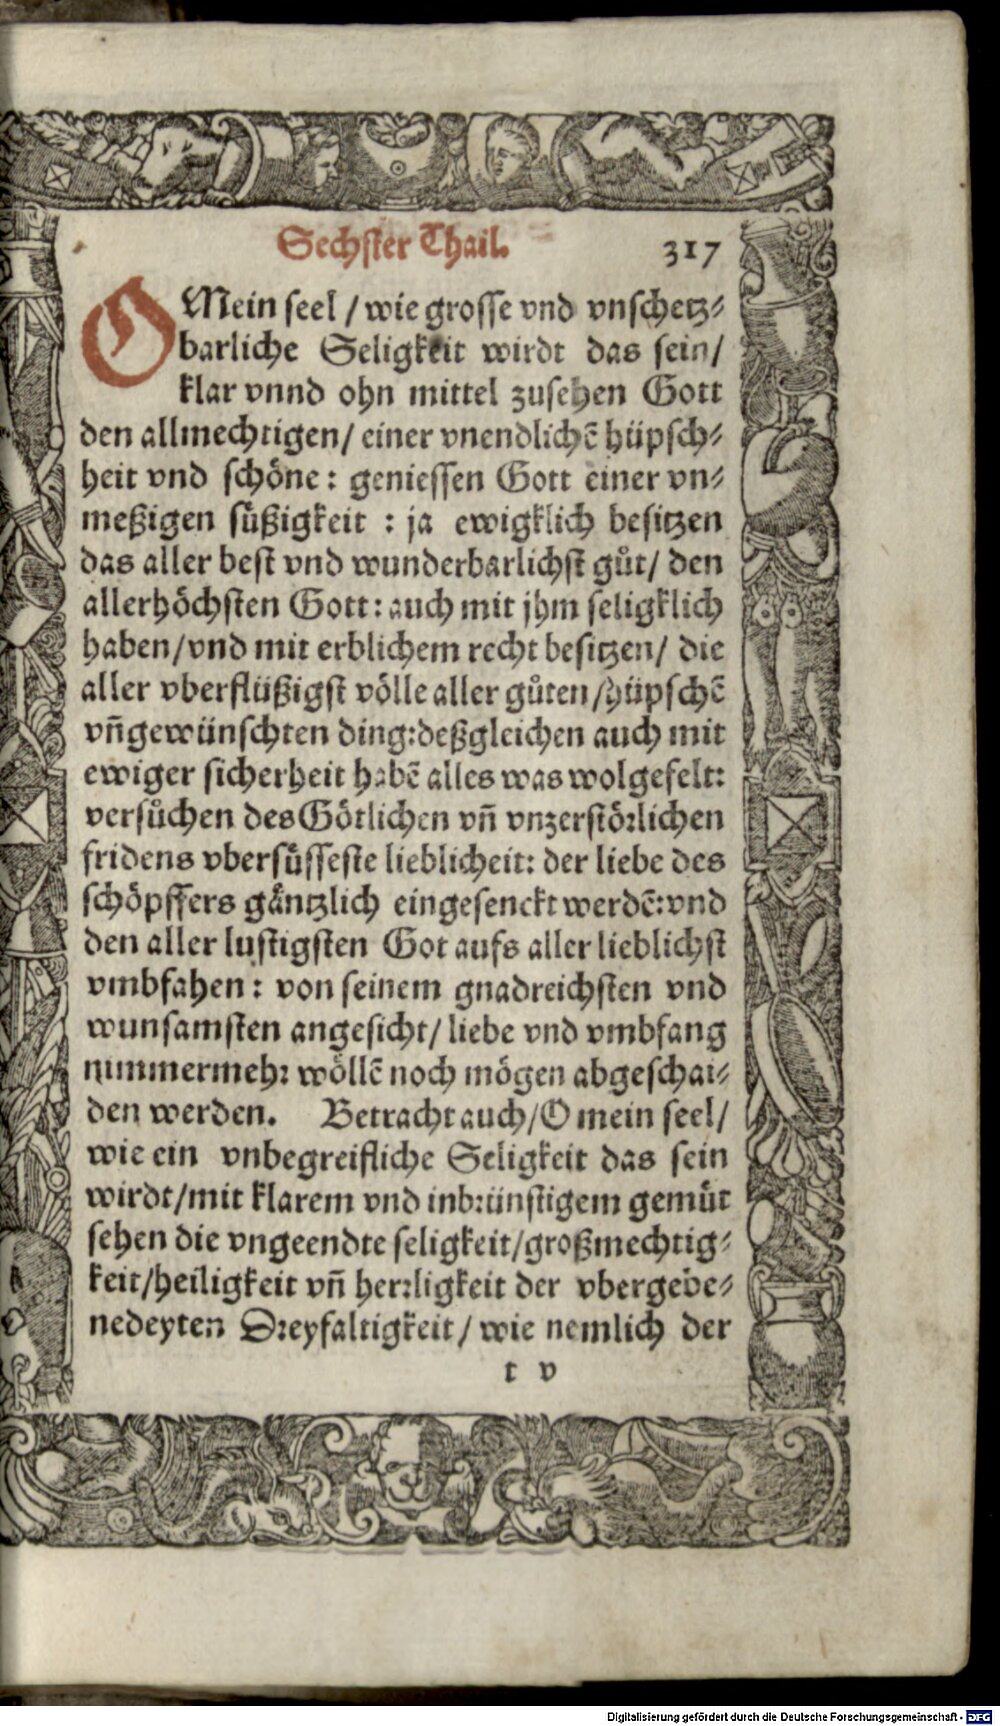 Sechster Thail. 317
O Mein seel / wie grosse vnd vnschetz⸗
barliche Seligkeit wirdt das sein/
klar vnnd ohn mittel zusehen Gott
den allmechtigen/ einer vnendlichē hüpsch⸗
heit vnd schöne: geniessen Gott einer vn⸗
meßigen süßigkeit : ja ewigklich besitzen
das aller best vnd wunderbarlichst gůt/ den
allerhöchsten Gott: auch mit jhm seligklich
haben/vnd mit erblichem recht besitzen/ die
aller vberflüßigst völle aller gůten/hüpschē
vñgewünschten ding:deßgleichen auch mit
ewiger sicherheit habē alles was wolgefelt:
versůchen des Götlichen vñ vnzerstörlichen
fridens vbersüsseste lieblicheit: der liebe des
schöpffers gäntzlich eingesenckt werdē:vnd
den aller lustigsten Got aufs aller lieblichst
vmbfahen: von seinem gnadreichsten vnd
wunsamsten angesicht/ liebe vnd vmbfang
nimmermehr wöllē noch mögen abgeschai⸗
den werden. Betracht auch/O mein seel/
wie ein vnbegreifliche Seligkeit das sein
wirdt/mit klarem vnd inbrünstigem gemüt
sehen die vngeendte seligkeit/großmechtig⸗
keit/heiligkeit vñ herrligkeit der vbergebe⸗
nedeyten Dreyfaltigkeit/ wie nemlich der
t v
Digitalisierung gefördert durch die Deutsche Forschungsgemeinschaft - DFG